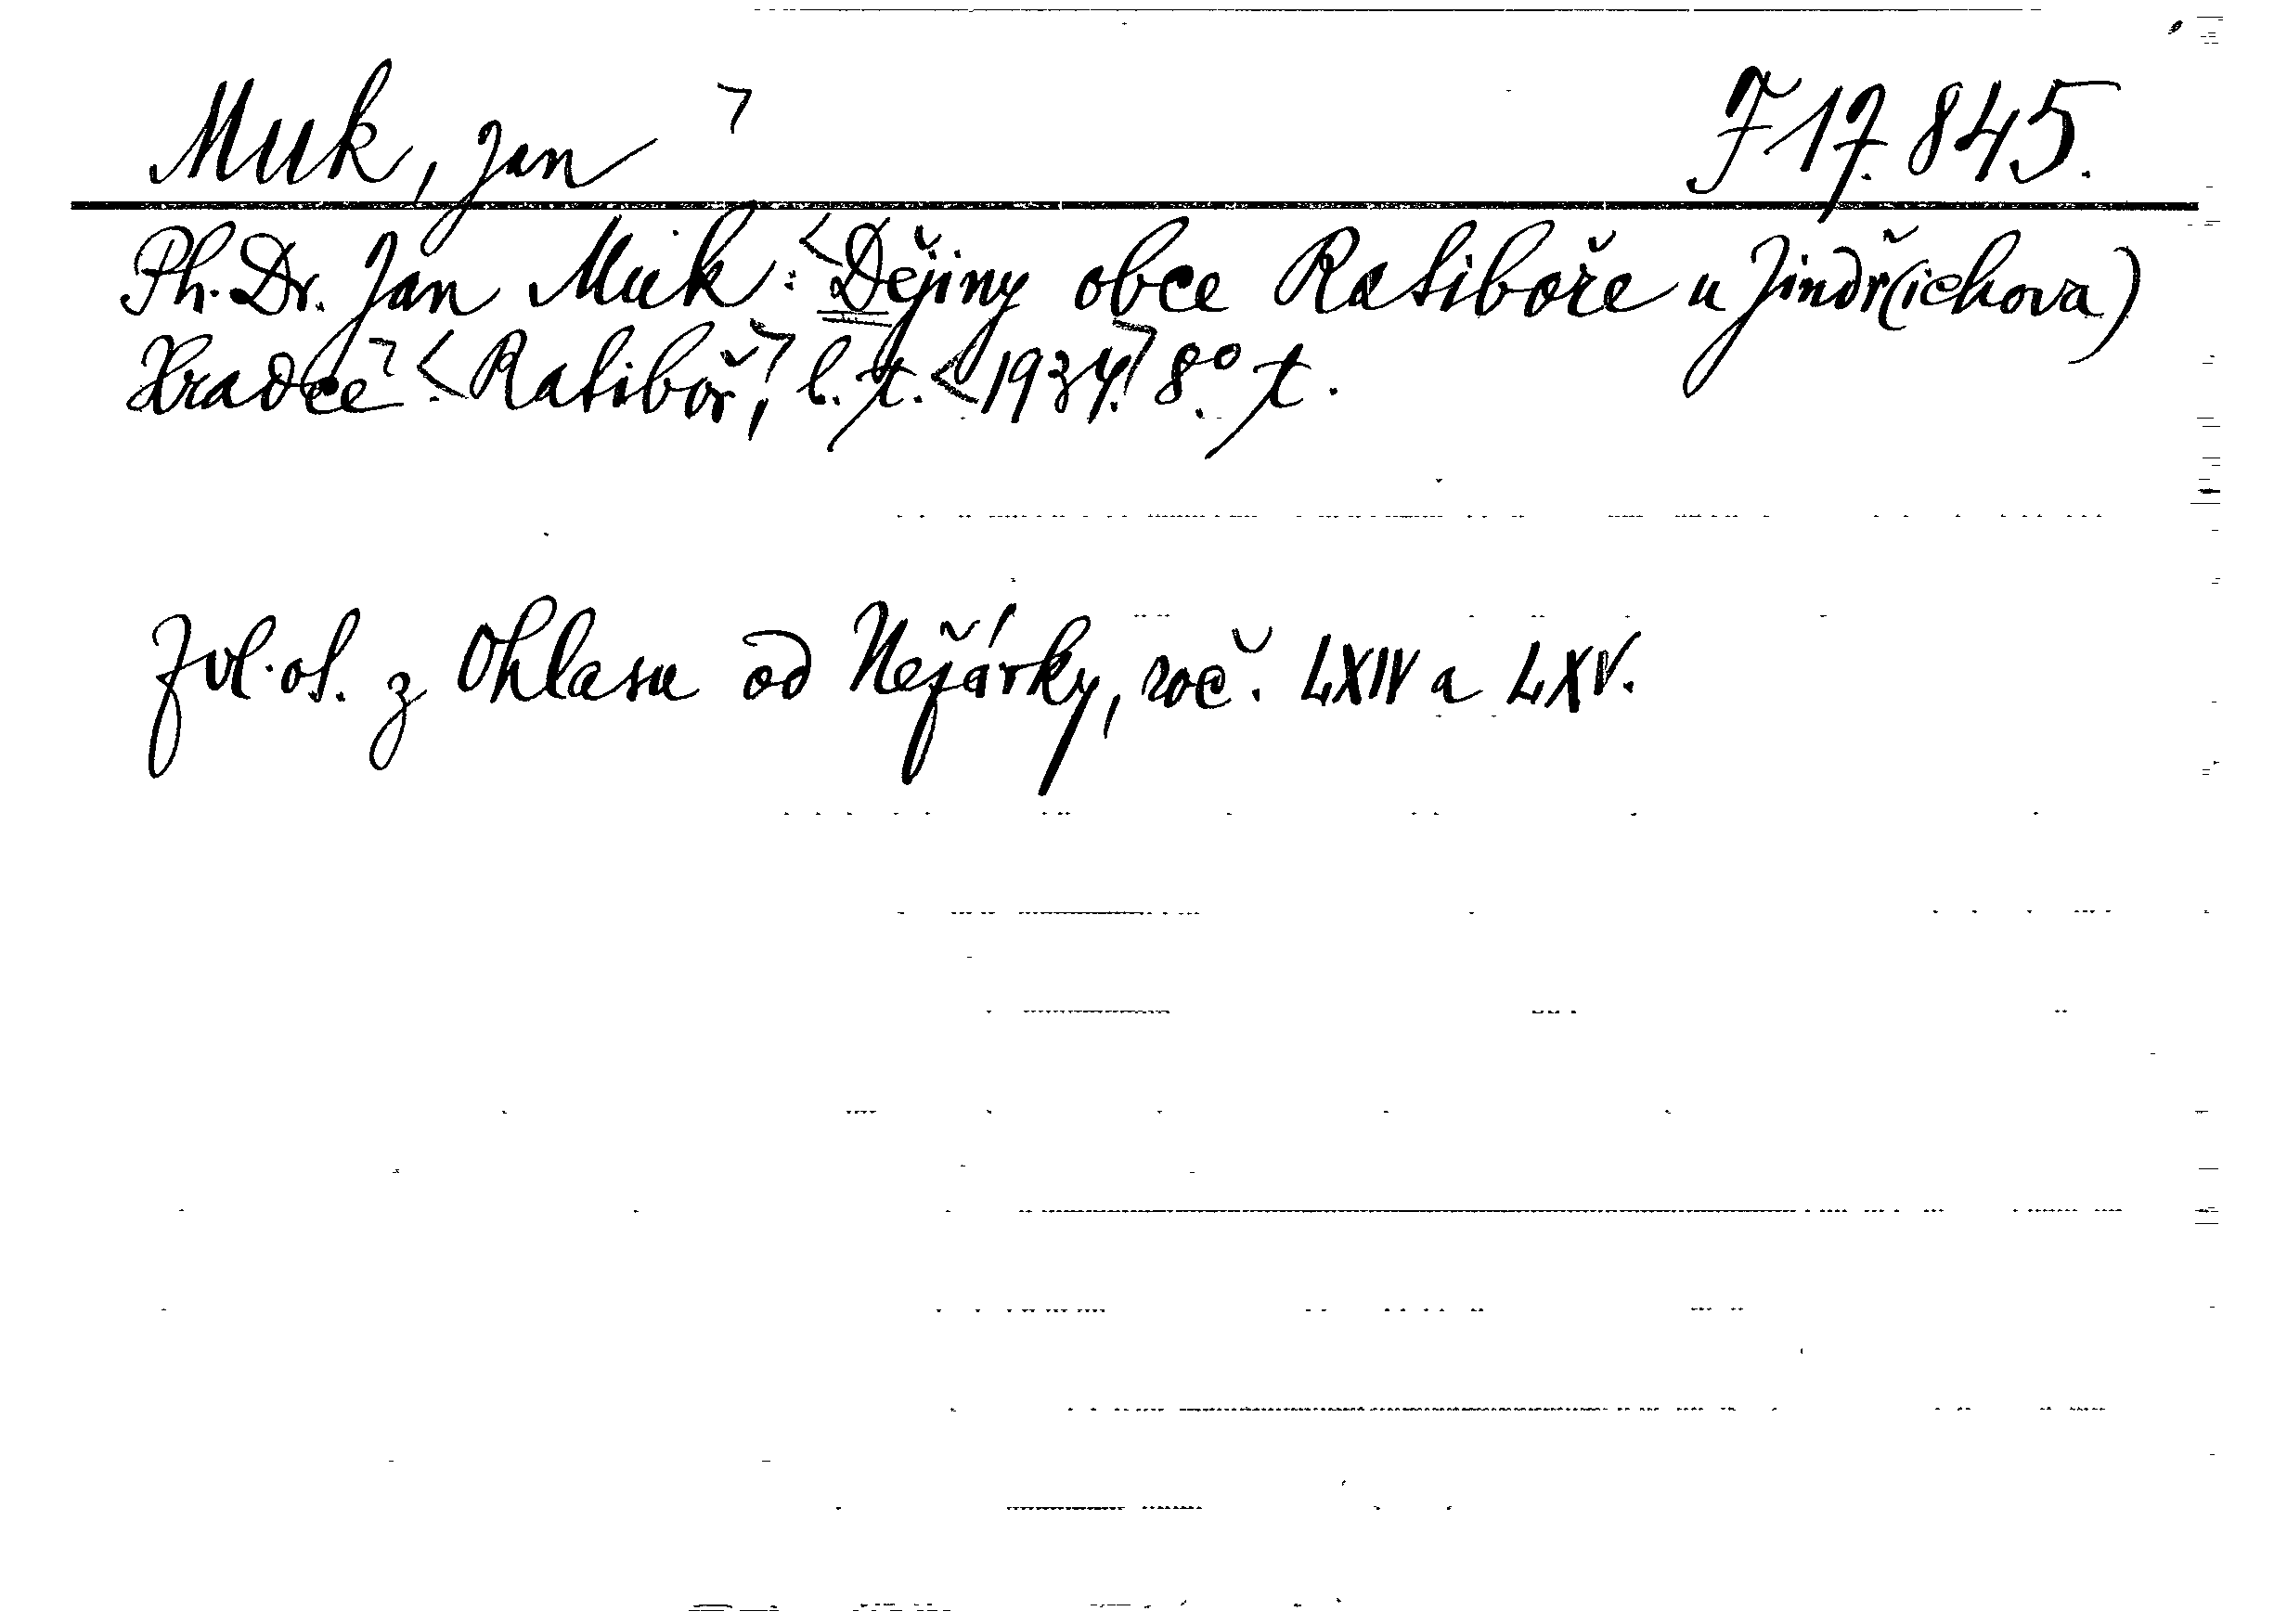 Muk, Jan F 17.845.
Ph. Dr. Jan Muk: Dějiny obce Ratiboře u Jindř(ichova)
Hradce. Ratiboř, b. t. 1934. 8°. t.
Zvl. ot. z Ohlasu od Nežárky, roč. LXIV a LXV.